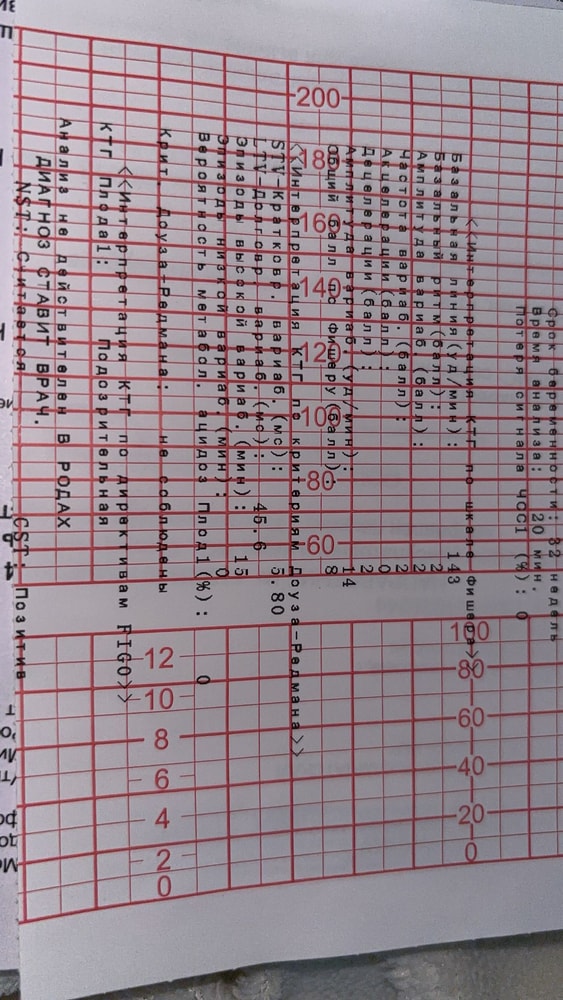 Срок беременности: 32 недель
Время анализа: 20 мин.
Потеря сигнала ЧСС1 (%): 0
<<Интерпретация КТГ по шкале Фишера>>
Базальная линия(уд/мин): 143
Базальный ритм(балл): 2
Амплитуда вариаб.(балл): 2
Частота вариаб.(балл): 2
Акцелерации(балл): 0
Децелерации(балл): 2
Амплитуда вариаб.(уд/мин): 14
Общий балл по Фишеру(балл): 8
<<Интерпретация КТГ по критериям Доуза-Редмана>>
STV-Кратковр. вариаб.(мс): 5.80
LTV-Долговр. вариаб.(мс): 45.6
Эпизоды высокой вариаб.(мин): 15
Эпизоды низкой вариаб.(мин): 0
Вероятность метабол. ацидоз Плод1(%): 0
Крит. Доуза-Редмана: не соблюдены
<<Интерпретация КТГ по директивам FIGO>>
КТГ Плода1: Подозрительная
Анализ не действителен В РОДАХ
ДИАГНОЗ СТАВИТ ВРАЧ.
NST: Считается CST: Позитив
200
180
160
140
120
100
80
60
100
80
60
40
20
0
12
10
8
6
4
2
0